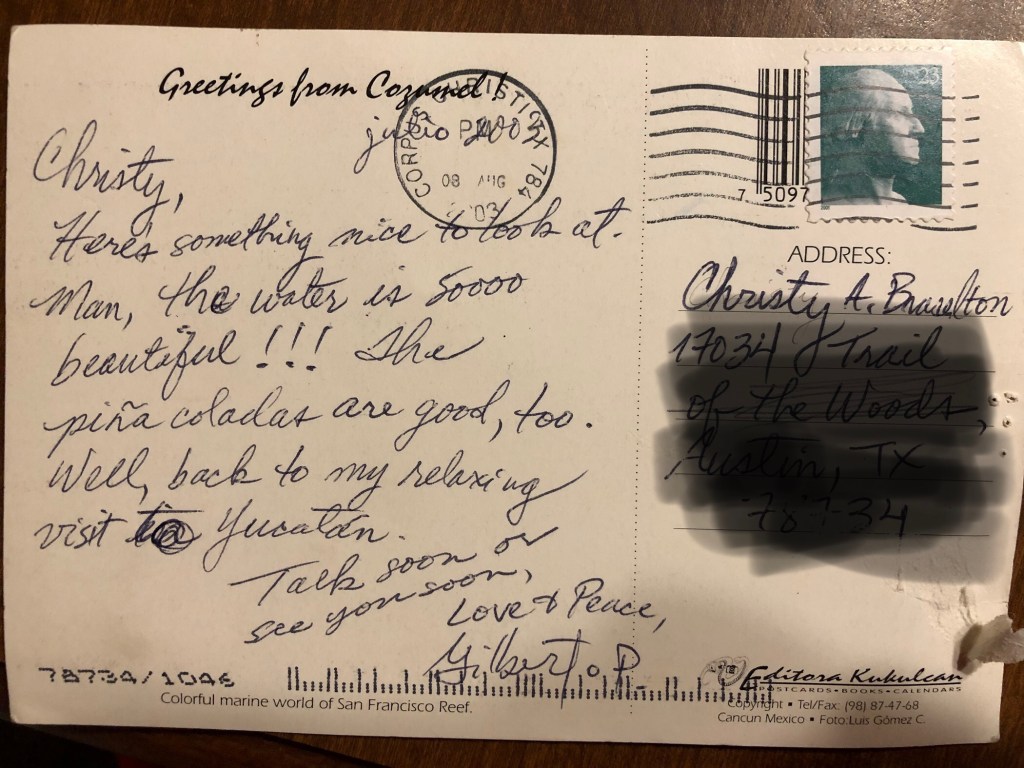 Greetings from Cozumel!
julio 2003
CORPUS CHRISTI TX 784
PM
08 AUG
2003
23
7 5097
Christy,
Here's something nice to look at.
Man, the water is soooo
beautiful!!! The
piña coladas are good, too.
Well, back to my relaxing
visit @ Yucatán.
Talk soon or
see you soon,
Love & Peace,
Gilberto P.
ADDRESS:
Christy A. Braselton
78734/1046
Colorful marine world of San Francisco Reef.
Editora Kukulcan
POSTCARDS • BOOKS • CALENDARS
Copyright • Tel/Fax: (98) 87-47-68
Cancun Mexico • Foto:Luis Gómez C.